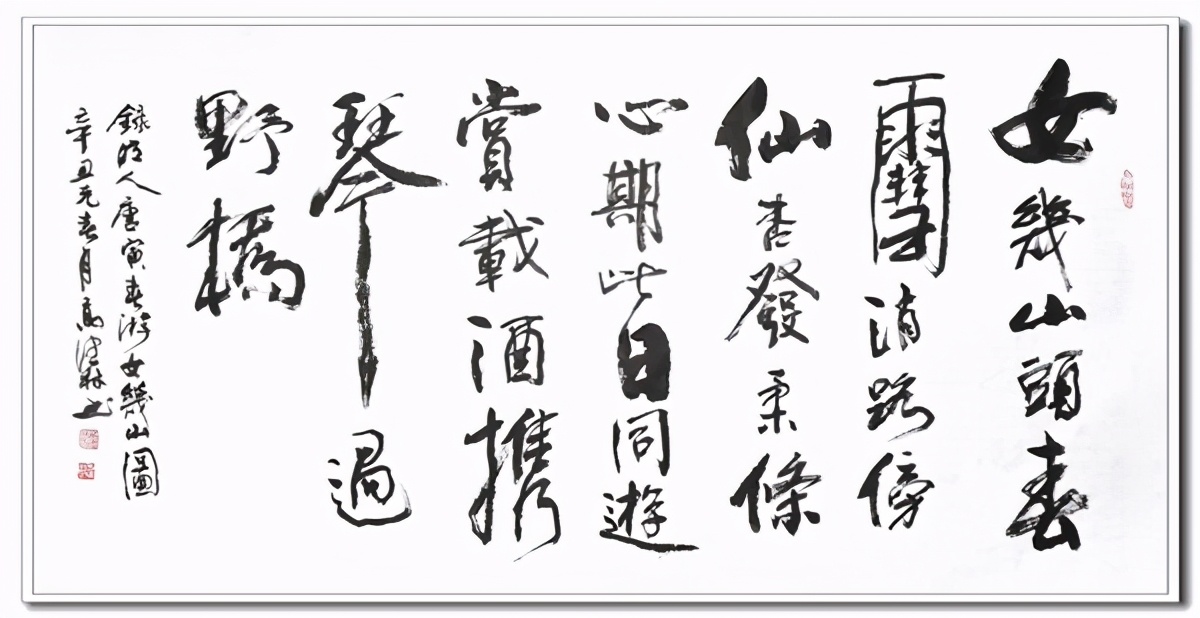 女幾山頭春
雪消路傍
仙杏發柔條
心期此日同遊
賞載酒携
琴過
野橋
錄明人唐寅春游女幾山圖
辛丑元春月高林書